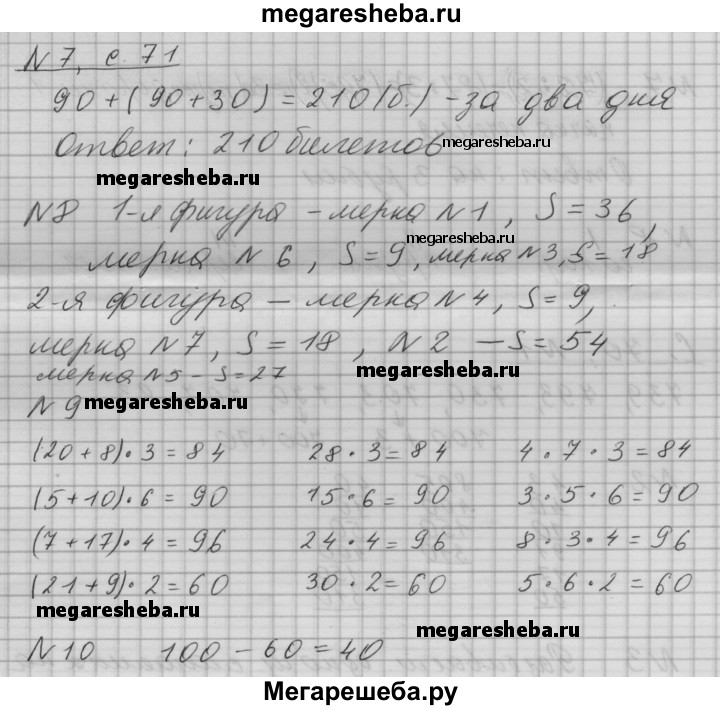 megaresheba.ru
N 7, с. 71
90 + (90 + 30) = 210 (б.) - за два дня
Ответ: 210 билетов
megaresheba.ru
megaresheba.ru
N8 1-я фигура - мерка N1, S = 36,
megaresheba.ru
мерка N 6, S = 9, мерка N3, S = 18
2-я фигура - мерка N4, S = 9,
мерка N7, S = 18, N2 - S = 54
мерка N5 - S = 27
megaresheba.ru
N 9 megaresheba.ru
(20 + 8) · 3 = 84 28 · 3 = 84 4 · 7 · 3 = 84
(5 + 10) · 6 = 90 15 · 6 = 90 3 · 5 · 6 = 90
(7 + 17) · 4 = 96 24 · 4 = 96 8 · 3 · 4 = 96
(21 + 9) · 2 = 60 30 · 2 = 60 5 · 6 · 2 = 60
megaresheba.ru
megaresheba.ru
N 10 100 - 60 = 40
Мегарешеба.ру